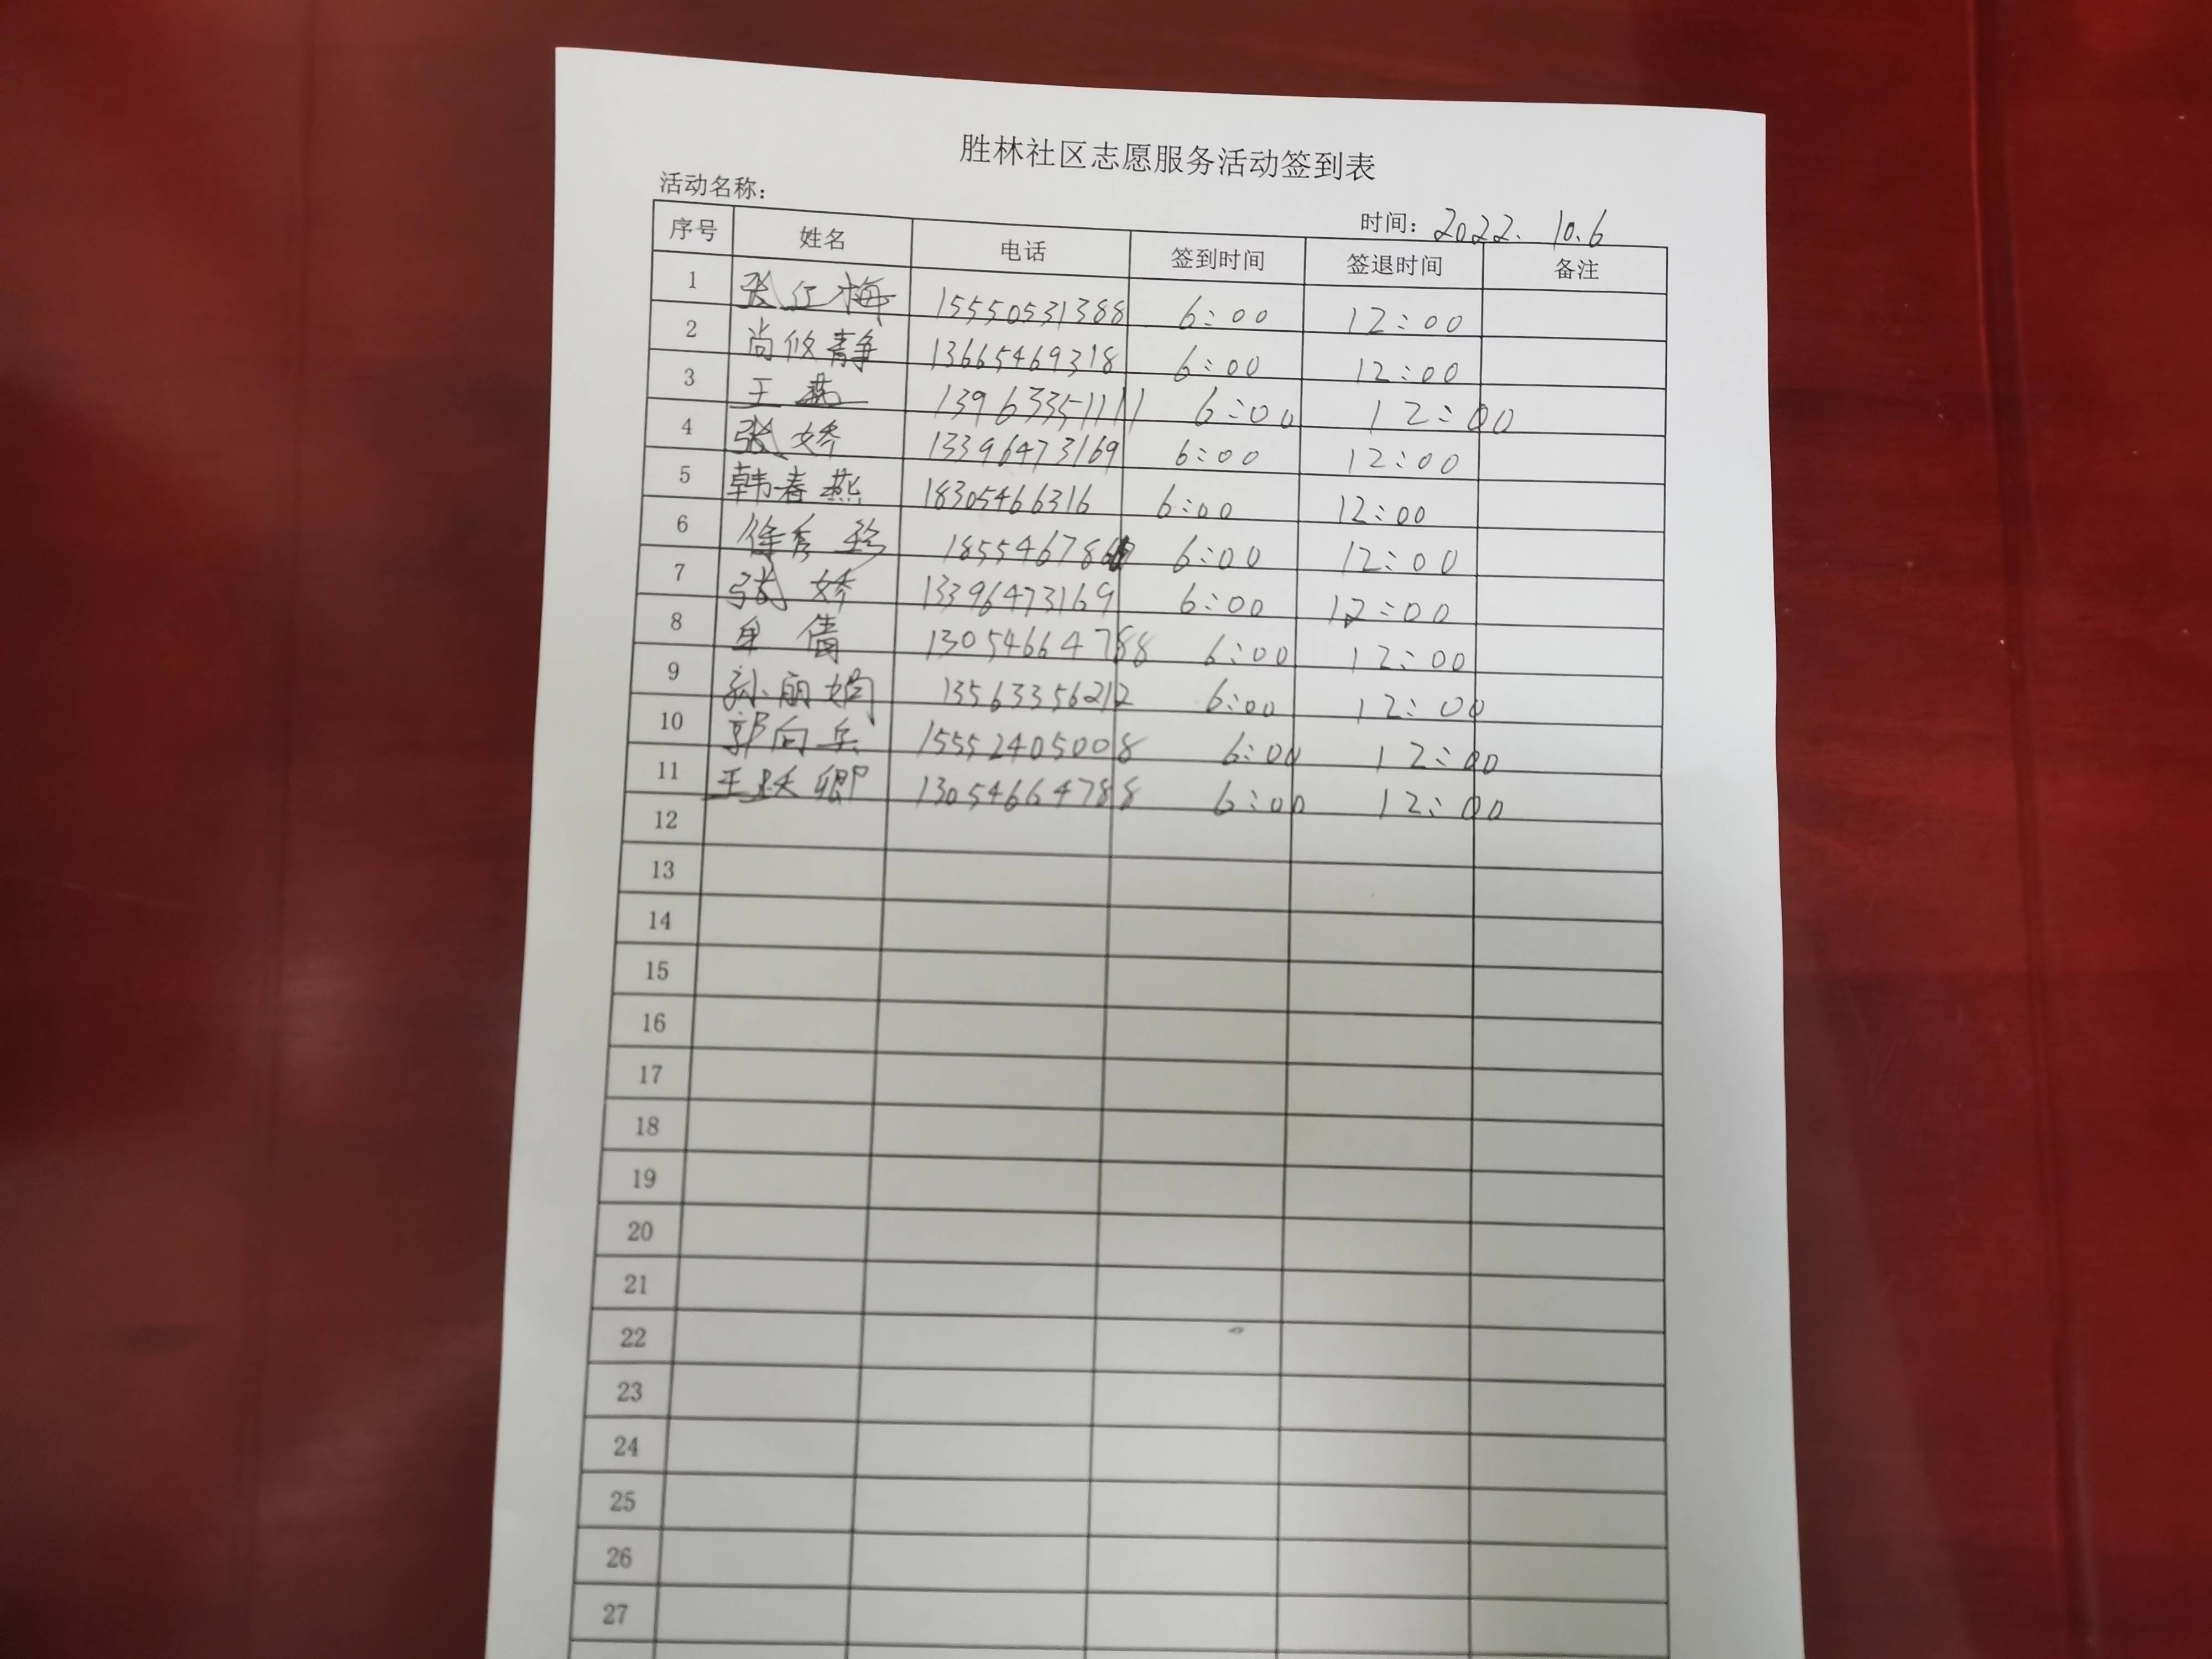 胜林社区志愿服务活动签到表
活动名称：
时间：2022.10.6
序号 姓名 电话 签到时间 签退时间 备注
1 张红梅 15550531388 6:00 12:00
2 尚攸静 13665469318 6:00 12:00
3 王燕 13963351111 6:00 12:00
4 张娇 13396473169 6:00 12:00
5 韩春燕 18305466316 6:00 12:00
6 徐秀珍 6:00 12:00
7 张娇 13396473169 6:00 12:00
8 单倩 13054664788 6:00 12:00
9 孙丽娟 13563356212 6:00 12:00
10 郭向兵 15552405008 6:00 12:00
11 王跃卿 13054664788 6:00 12:00
12
13
14
15
16
17
18
19
20
21
22
23
24
25
26
27